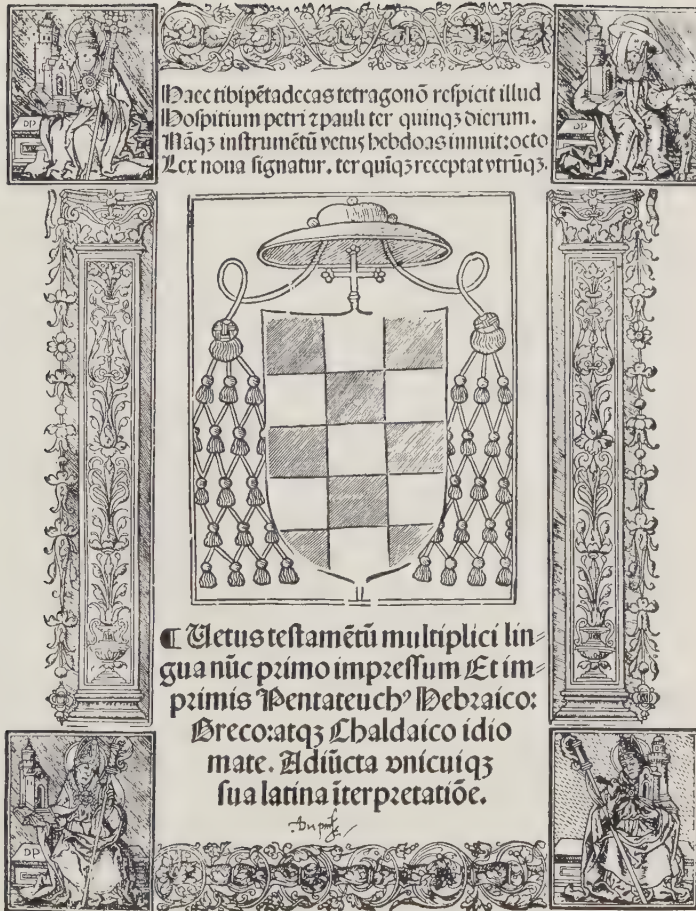 Haec tibi pētadecas tetragonō respicit illud
Hospitium petri ⁊ pauli ter quinqꝫ dierum.
Nāqꝫ instrumētū vetus hebdoas innuit: octo
Lex noua signatur. ter quīqꝫ receptat vtrūqꝫ.
DP
DP
¶ Uetus testamētū multiplici lin⸗
gua nūc primo impressum Et im⸗
primis Pentateuchꝰ Hebraico:
Greco: atqꝫ Chaldaico idio
mate. Adiūcta vnicuiqꝫ
sua latina īterpretatiōe.
DP